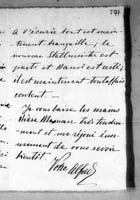 791
A l'écurie tout est main-
tenant tranquille; le
nouveau Stallmeister est
parti et Hansl est
est maintenant tout à fait
content.
Je vous baise les mains
chère Maman très tendre-
ment et me réjouis
de vous revoir
bientôt.
Votre Alfred